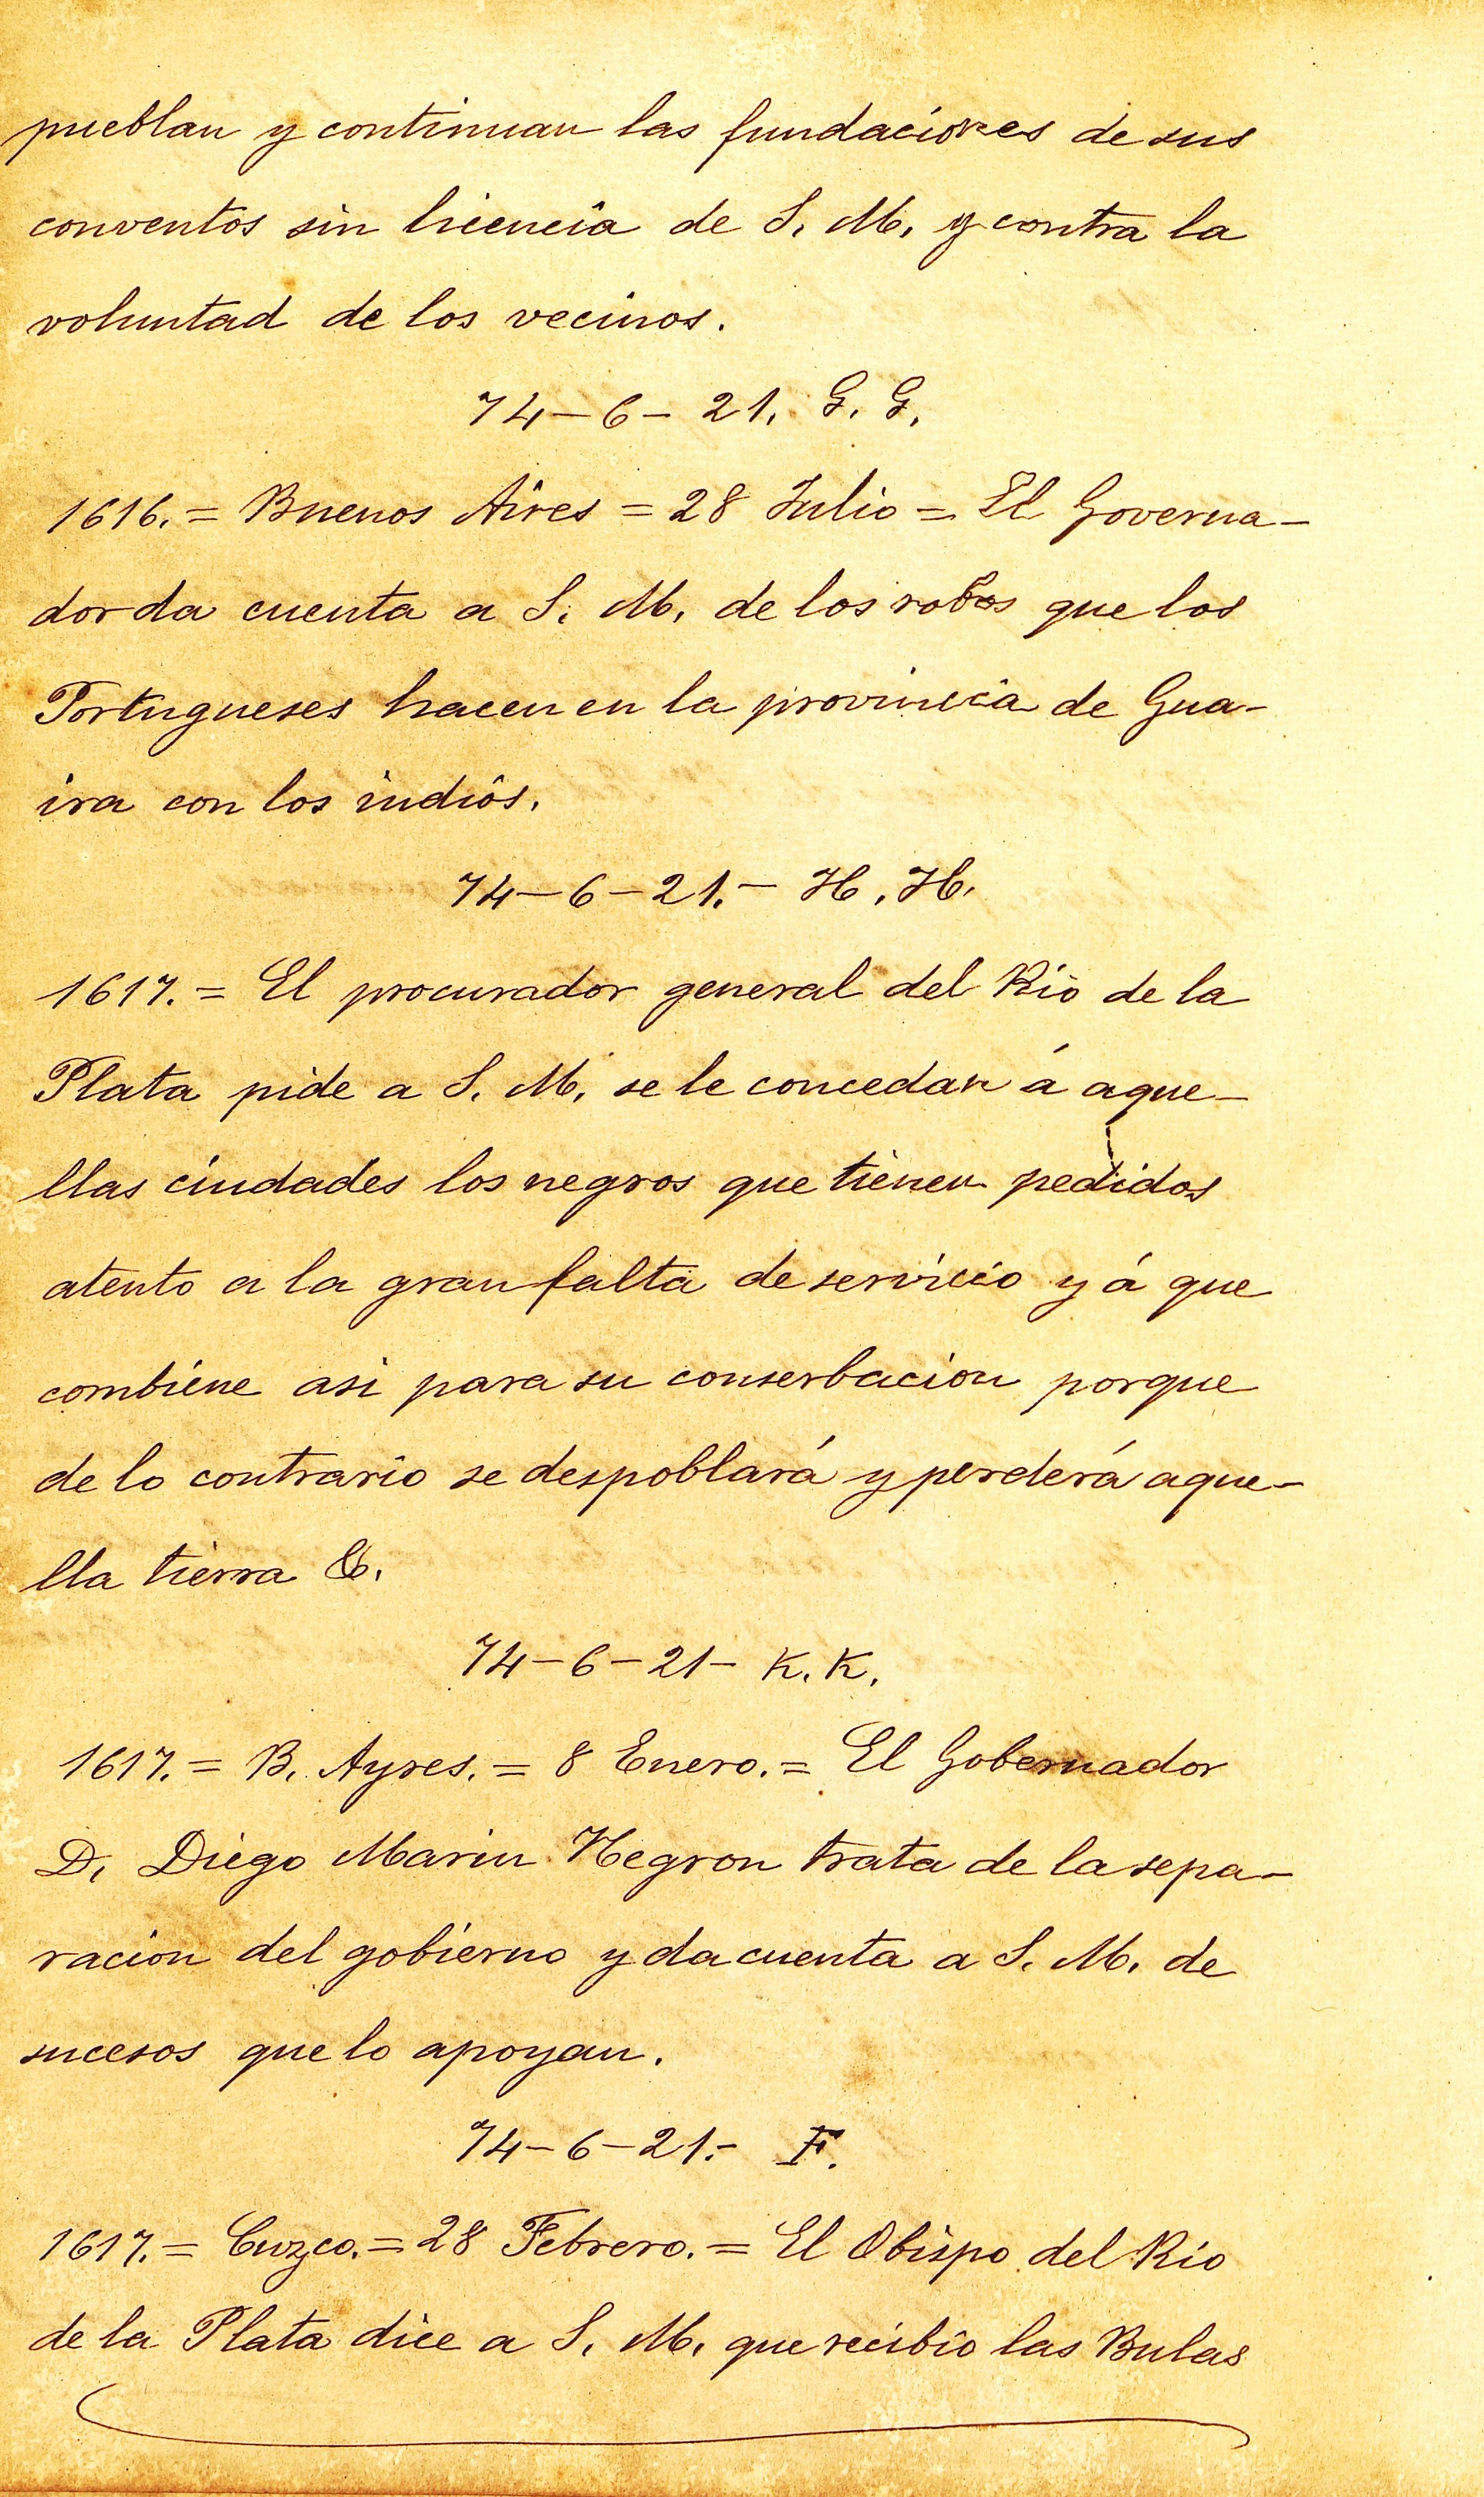 pueblan y continuan las fundaciones de sus
conventos sin licencia de S. M. y contra la
voluntad de los vecinos.
74-6-21. G. G.
1616.= Buenos Aires = 28 Julio = El Governa-
dor da cuenta a S. M. de los robos que los
Portugueses hacen en la provincia de Gua-
ira con los indios.
74-6-21.- H. H.
1617.= El procurador general del Rio de la
Plata pide a S. M. se le concedan á aque-
llas ciudades los negros que tienen pedidos
atento a la gran falta de servicio y á que
combiene asi para su conserbacion porque
de lo contrario se despoblará y perderá aque-
lla tierra &.
74-6-21- K. K.
1617.= B. Ayres.= 8 Enero.= El Gobernador
D. Diego Marin Negron trata de la sepa-
racion del gobierno y da cuenta a S. M. de
sucesos que lo apoyan.
74-6-21.- F.
1617.= Cuzco.= 28 Febrero.= El Obispo del Rio
de la Plata dice a S. M. que recibio las Bulas